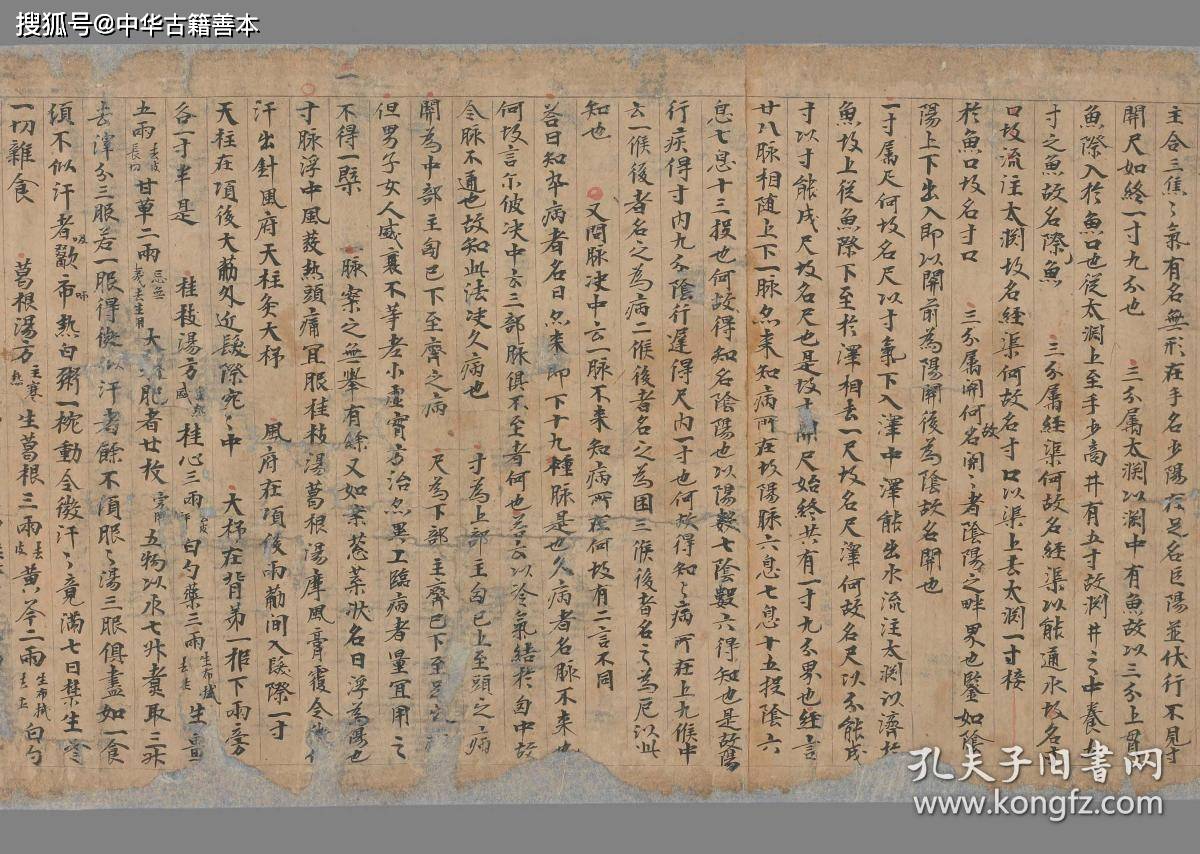 搜狐号@中华古籍善本
主合三焦〻氣有名無形在手名少陽在足名巨陽並伏行不見寸
關尺如終一寸九分也 三分属太渊以渊中有魚故以三分上貫
魚際入於魚口也從太渊上至手少商井有五寸故渊井之中養
寸之魚故名際魚 三分属経渠何故名経渠以能通水故名
口故流注太渊故名経渠何故名寸口以渠上去太渊一寸接
於魚口故名寸口 三分属關何故名關〻者陰陽之畔界也鑒如陰
陽上下出入即以關前為陽關後為陰故名關也
一寸属尺何故名尺以寸氣下入澤中澤能出水流注太渊以濟於
魚故上從魚際下至於澤相去一尺故名尺澤何故名尺以分能成
寸以寸能成尺故名尺也是故寸關尺始終共有一寸九分界也経言
廿八脉相随上下一脉忽来知病所在故陽脉六息七息十五投陰六
息七息十三投也何故得知名陰陽也以陽數七陰數六得知也是故陽
行疾得寸内九分陰行遲得尺内一寸也何故得知〻病所在上九候中
云一候後者名之為病二候後者名之為困三候後者名之為厄以此
知也 又問脉决中云一脉不来知病所在何故有二言不同
荅曰知卒病者名曰忽来即下十九種脉是也久病者名脉不来也
何故言尔彼决中云三部脉俱不至者何也荅云以冷氣結於匈中故
令脉不通也故知此法决久病也 寸為上部主匈已上至頭之病
關為中部主匈已下至齊之病 尺為下部主齊已下至足之
但男子女人盛衰不等老小虚實方治忽異工臨病者量宜用之
不得一槩 脉案之無舉有餘又如案葱葉状名曰浮為陽也
寸脉浮中風發熱頭痛宜服桂枝湯葛根湯摩風膏覆令
汗出針風府天柱灸大杼 風府在項後兩筋間入髪際一寸
天柱在項後大筋外近髪際宛〻中 大杼在背第一椎下兩旁
各一寸半是 桂枝湯方 桂心三兩 白勺藥三兩 生薑
五兩去皮 甘草二兩 大 肥者廿枚 五物以水七升煑取三升
去滓分三服若一服得微似汗者餘不須服〻湯三服俱盡如一食
須不似汗者歠一市熱白粥一椀動令微汗〻竟滿七日禁生冷
一切雜食 葛根湯方 生葛根三兩 黄芩二兩 白勺
孔夫子旧书网
www.kongfz.com